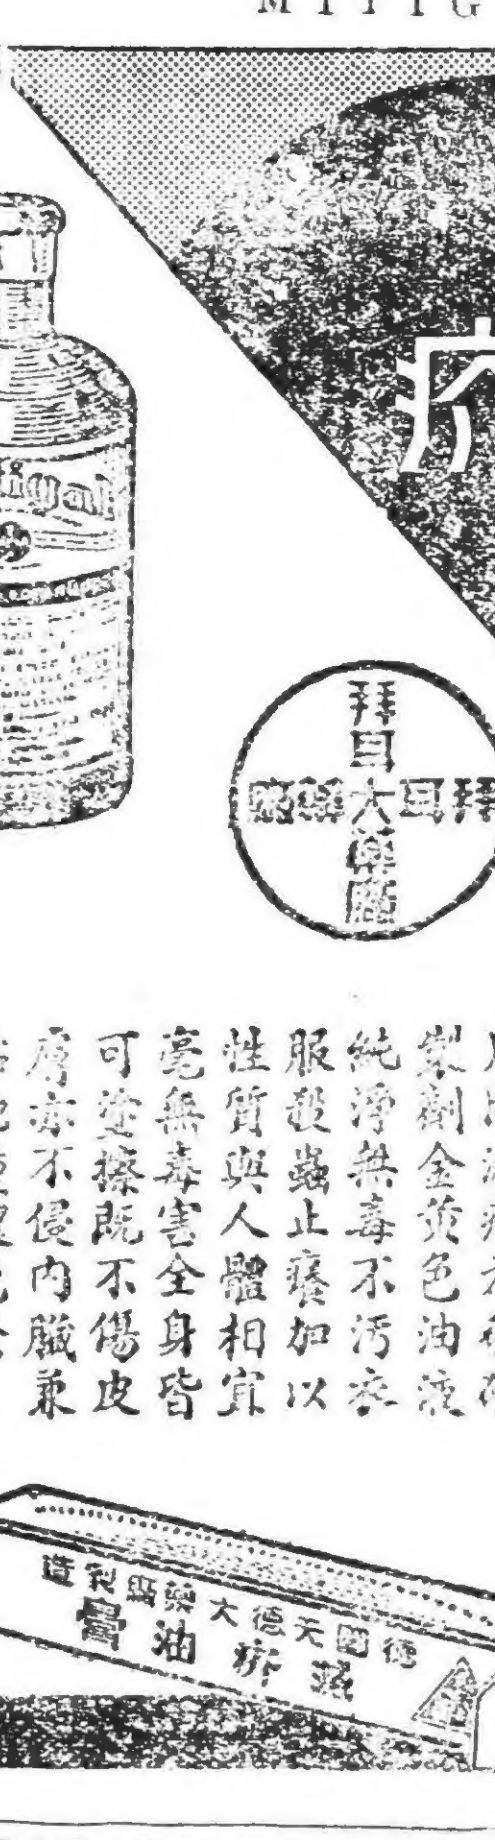 MITIG
igal
拜耳大藥廠
拜耳大藥廠
製劑金黃色油液
純淨無毒不污衣
服殺蟲止癢加以
性質與人體相宜
毫無毒害全身皆
可塗擦既不傷皮
膚亦不侵內臟兼
德國天德大藥廠製造
滅疥油膏